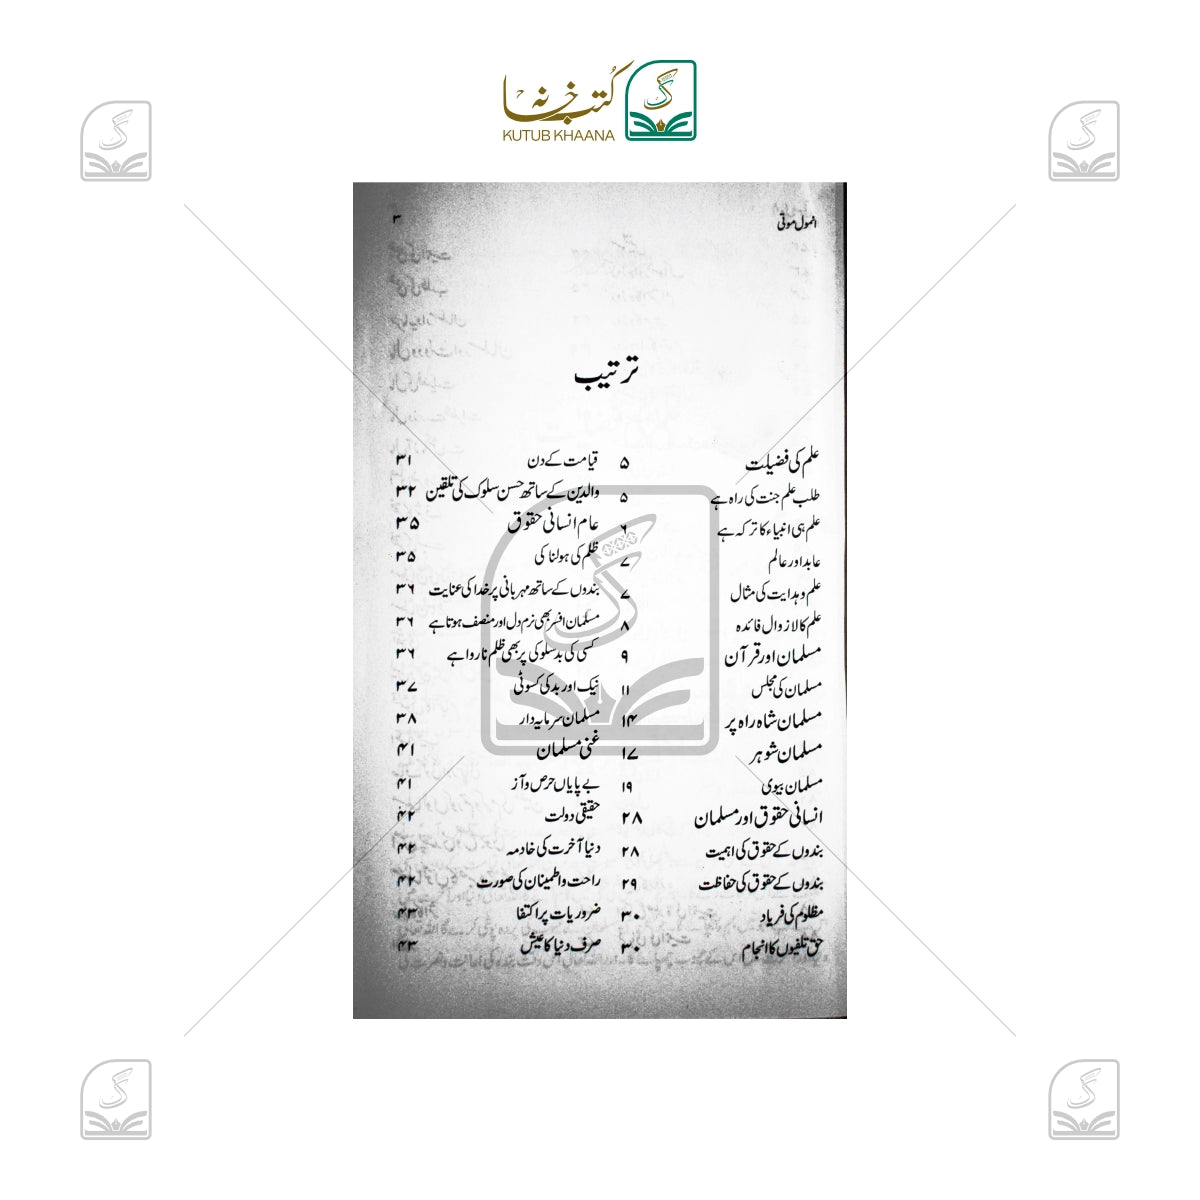 کتب خانہ
KUTUB KHAANA
انمول موتی
۳
ترتیب
علم کی فضیلت ۵
طلب علم جنت کی راہ ہے ۵
علم ہی انبیاء کا ترکہ ہے ۶
عابد اور عالم ۷
علم و ہدایت کی مثال ۷
علم کا لازوال فائدہ ۸
مسلمان اور قرآن ۹
مسلمان کی مجلس ۱۱
مسلمان شاہ راہ پر ۱۴
مسلمان شوہر ۱۷
مسلمان بیوی ۱۹
انسانی حقوق اور مسلمان ۲۸
بندوں کے حقوق کی اہمیت ۲۸
بندوں کے حقوق کی حفاظت ۲۹
مظلوم کی فریاد ۳۰
حق تلفیوں کا انجام ۳۰
قیامت کے دن ۳۱
والدین کے ساتھ حسن سلوک کی تلقین ۳۲
عام انسانی حقوق ۳۵
ظلم کی ہولناکی ۳۵
بندوں کے ساتھ مہربانی پر خدا کی عنایت ۳۶
مسلمان افسر بھی نرم دل اور منصف ہوتا ہے ۳۶
کسی کی بدسلوکی پر بھی ظلم ناروا ہے ۳۶
نیک اور بد کی کسوٹی ۳۷
مسلمان سرمایہ دار ۳۸
غنی مسلمان ۴۱
بے پایاں حرص و آز ۴۱
حقیقی دولت ۴۲
دنیا آخرت کی خادمہ ۴۲
راحت و اطمینان کی صورت ۴۲
ضروریات پر اکتفا ۴۳
صرف دنیا کا عیش ۴۳